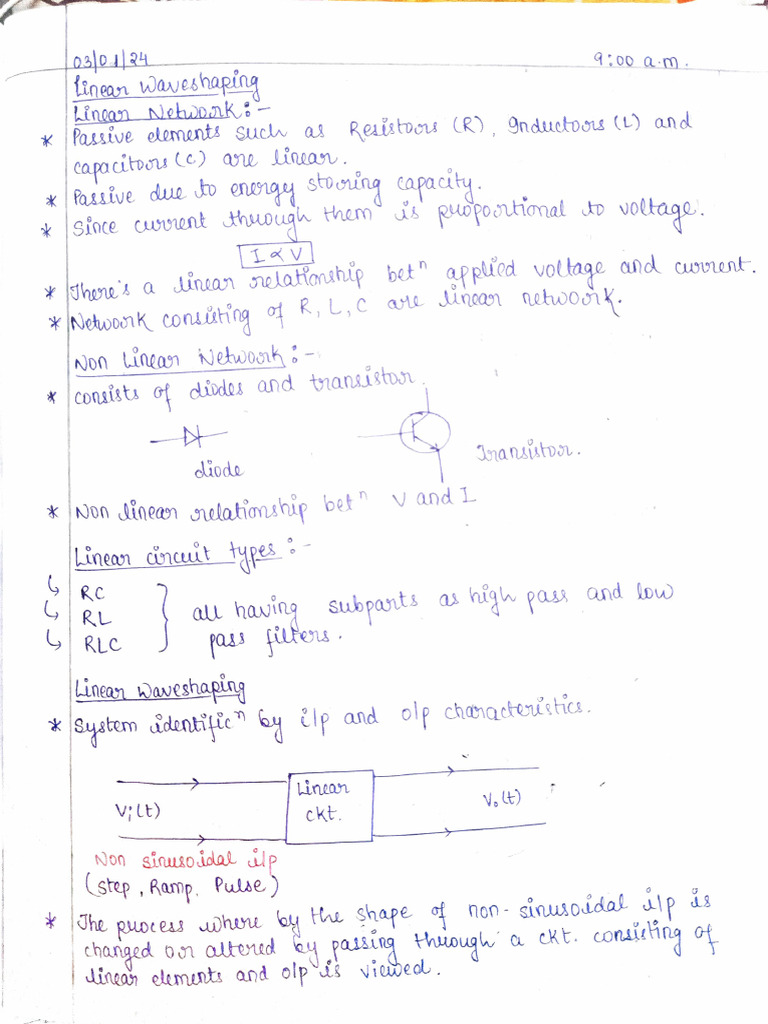 03/01/24 9:00 a.m.
Linear Waveshaping
Linear Network:-
* Passive elements such as Resistors (R), Inductors (L) and
capacitors (C) are linear.
* Passive due to energy storing capacity.
* Since current through them is proportional to voltage.
I ∝ V
* There's a linear relationship betⁿ applied voltage and current.
* Network consisting of R, L, C are linear network.
Non Linear Network:-
* consists of diodes and transistor.
diode
Transistor.
* Non linear relationship betⁿ V and I
Linear circuit types:-
↳ RC
↳ RL
↳ RLC
all having subparts as high pass and low
pass filters.
Linear Waveshaping
* System identificⁿ by i/p and o/p characteristics.
Vi(t)
Linear
ckt.
Vo(t)
Non sinusoidal i/p
(Step, Ramp, Pulse)
* The process where by the shape of non-sinusoidal i/p is
changed or altered by passing through a ckt. consisting of
linear elements and o/p is viewed.